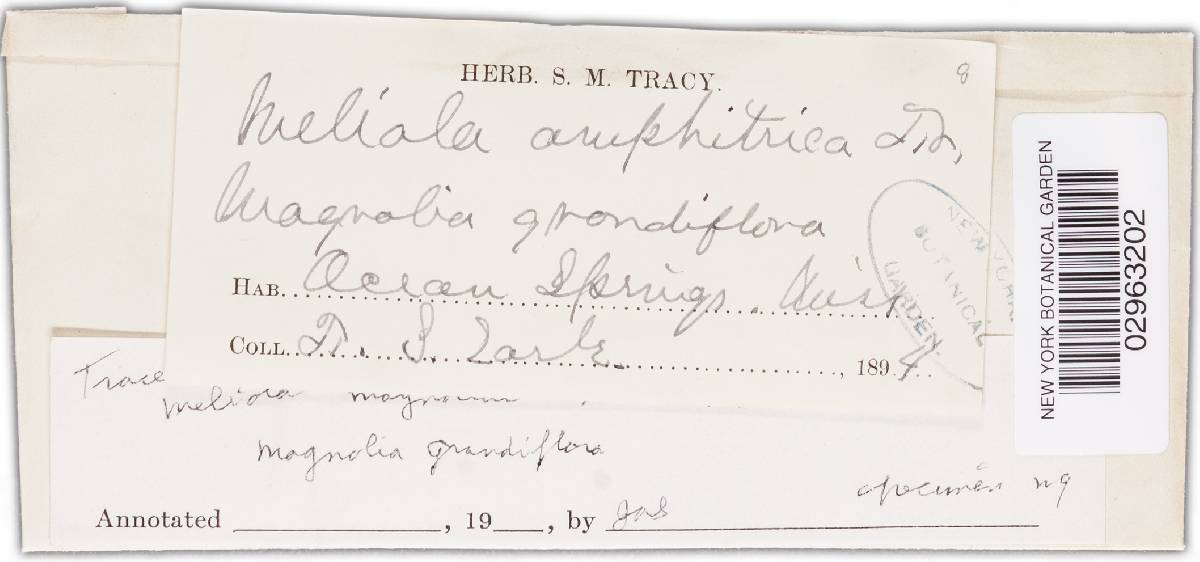 HERB. S. M. TRACY.
8
Meliola amphitrica Fr.
Magnolia grandiflora
HAB. Ocean Springs, Miss
COLL. F. S. Earle , 1894
NEW YORK BOTANICAL GARDEN
Trace
Meliola
Magnolia grandiflora
specimen ng
Annotated ____________, 19____, by Jas
NEW YORK BOTANICAL GARDEN
02963202